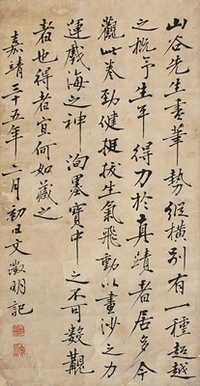 山谷先生書筆勢縱橫別有一種超越
之概予生平得力於真蹟者居多今
觀此卷勁健挺拔生氣飛動以畫沙之力
運戲海之神洵墨寶中之不可數覯
者也得者宜何如藏之
嘉靖三十五年二月初日文徵明記